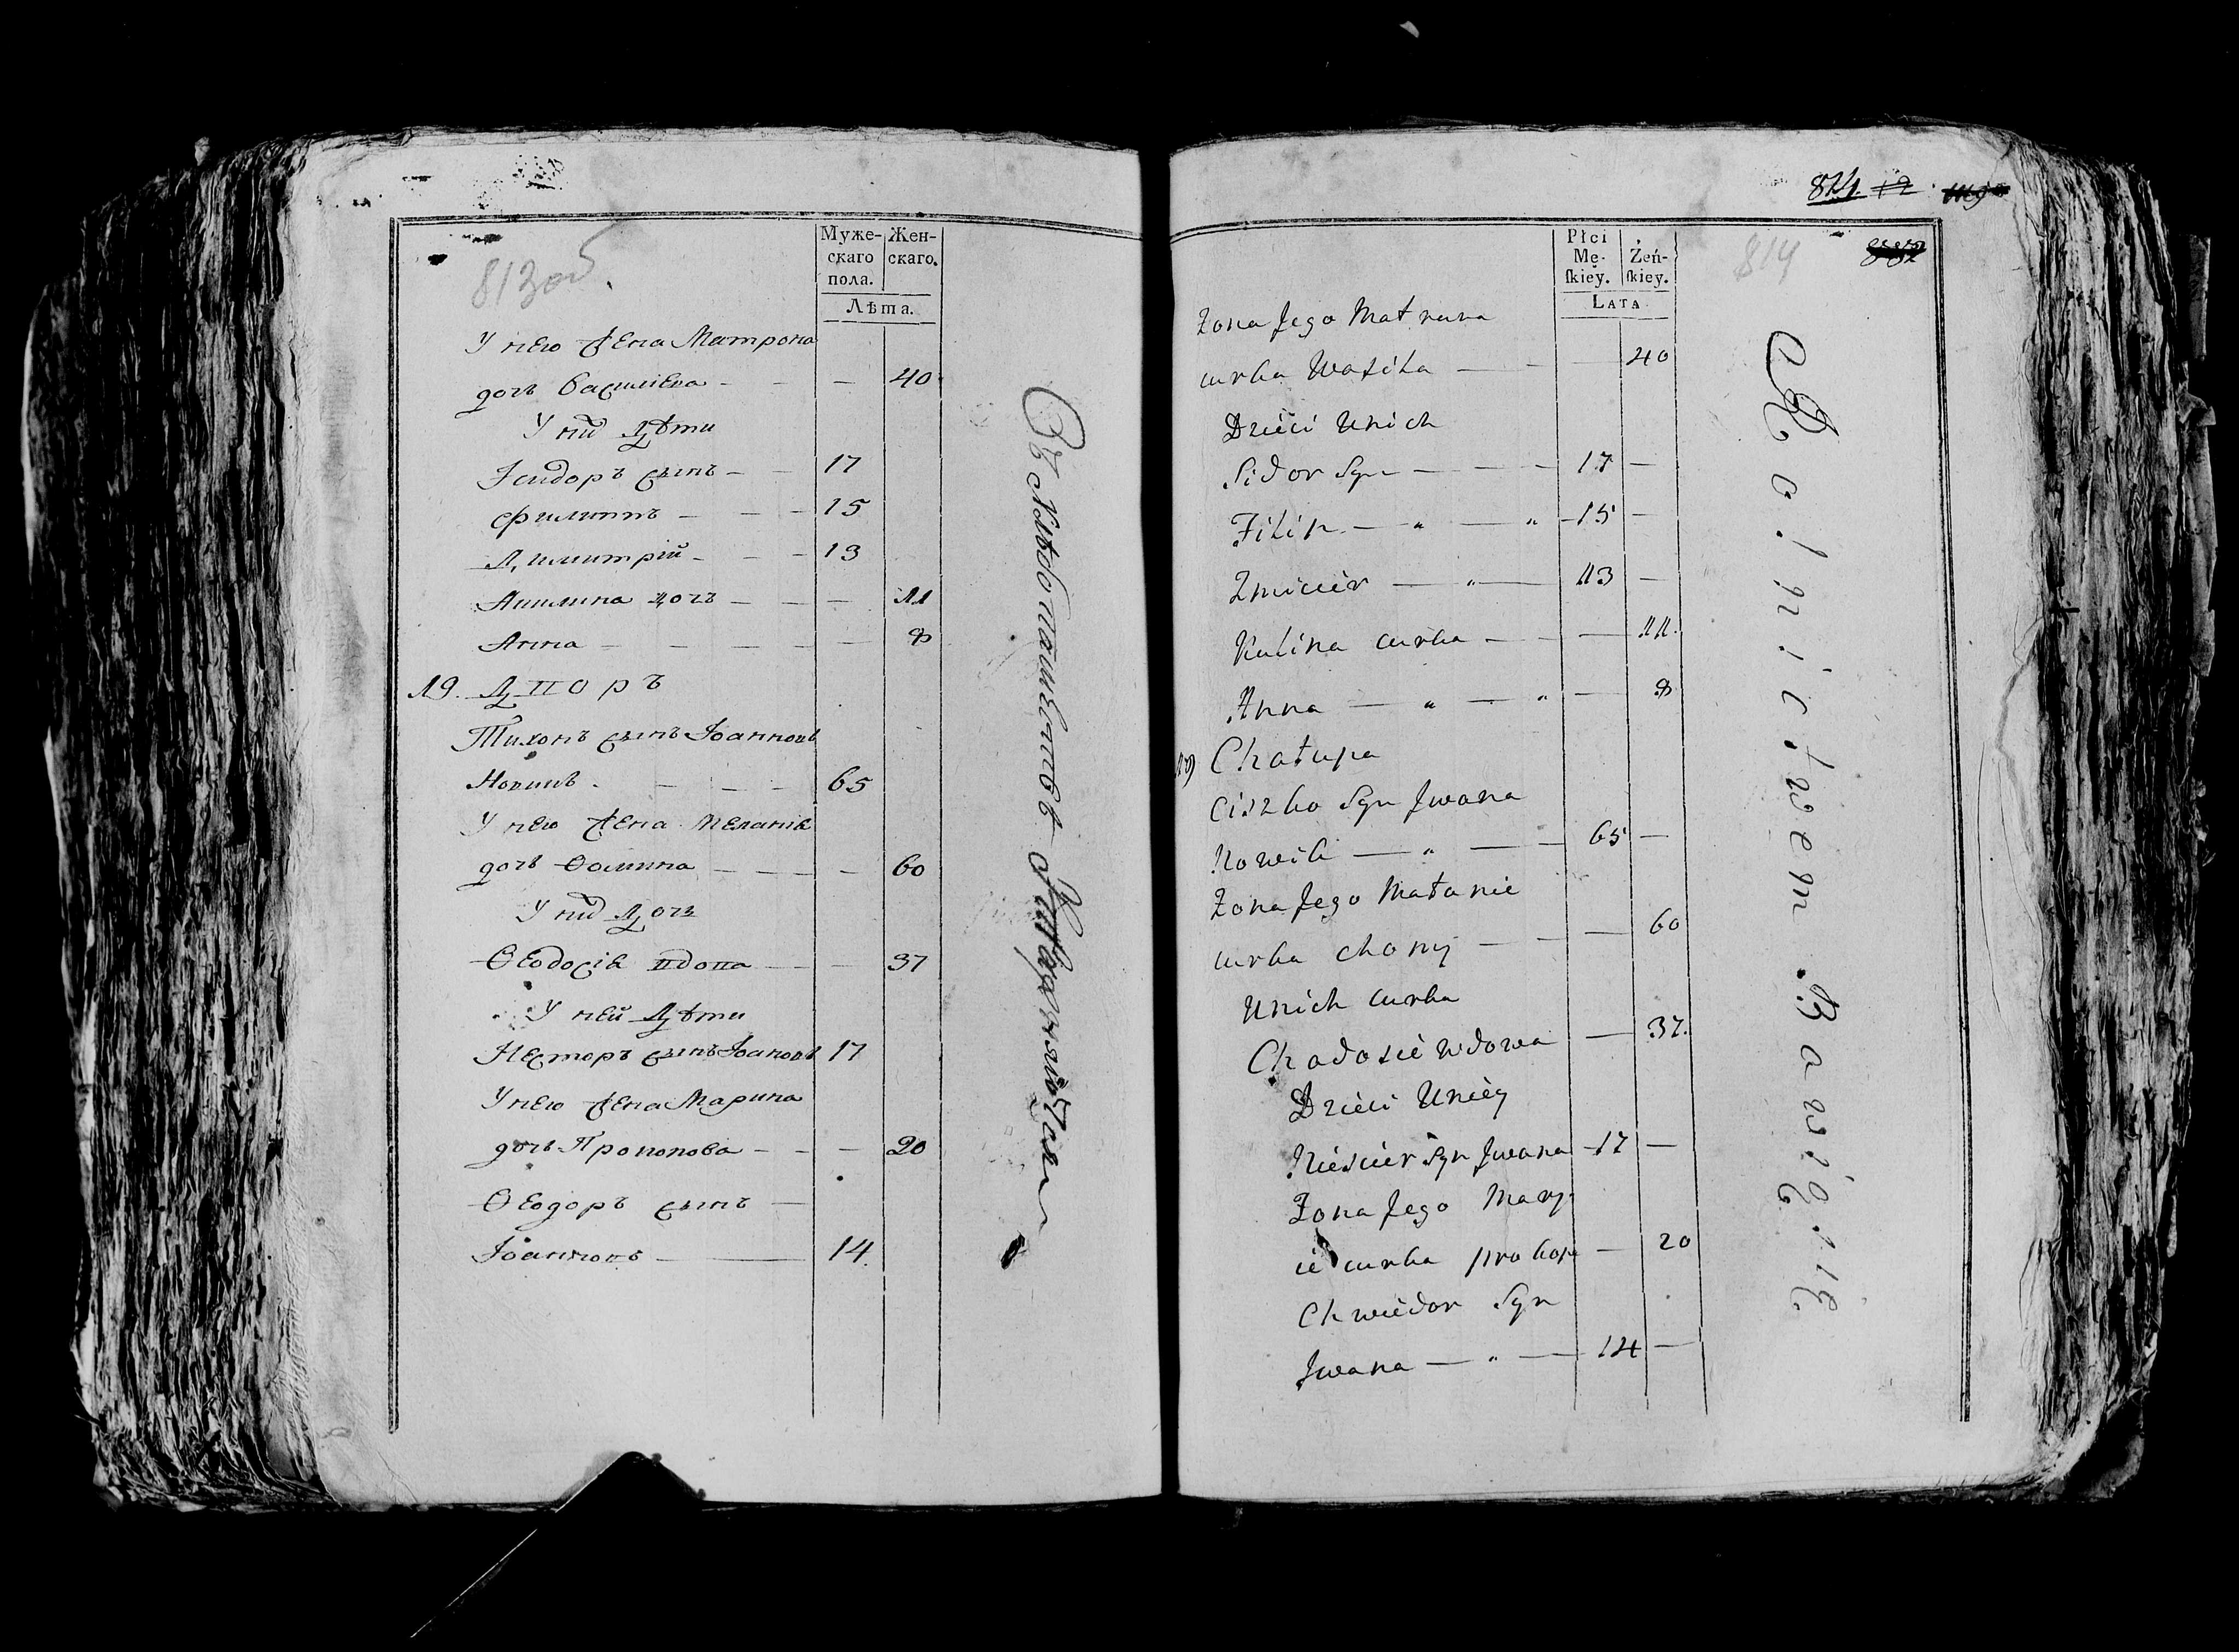 813 об.
Муже-
скаго
пола.
Жен-
скаго.
Лѣта.
У него жена Матрона
дочь Василіева - - - 40
У них Дѣти
Ісидоръ сынъ - - 17
Филиппъ - - - 15
Димитрій - - - 13
Акилина дочь - - - 11
Анна - - - - - 8
19. Дворъ
Тихонъ сынъ Іоанновъ
Новикъ - - - - 65
У него жена Меланія
дочь Ѳомина - - - - 60
У них Дочь
Ѳеодосія вдова - - 37
У ней Дѣти
Несторъ сынъ Іоановъ 17
У него жена Марина
дочь Прокопова - - - 20
Ѳеодоръ сынъ -
Іоанновъ - 14.
814
814
Płci
Mę-
ſkiey.
Żeń-
ſkiey.
LATA
Zona Jego Matruna
curka Wasila — — 40
Dzieci Unich
Sidor Syn — — — 17 —
Filip — " — " — 15 —
Zmicier — " — 13 —
Kulina curka — — 11.
Anna — " — " — 8
19) Chałupa
Ciszko Syn Jwana
Nowik — " — — 65 —
Zona Jego Małanie
curka Chomy — — — 60
Unich curka
Chadosie wdowa — 37.
Dzieci Uniey
Niescier Syn Jwana — 17 —
Zona Jego Mary-
ie curka prokopa — 20
Chwiedor Syn
Jwana — " — 14 —